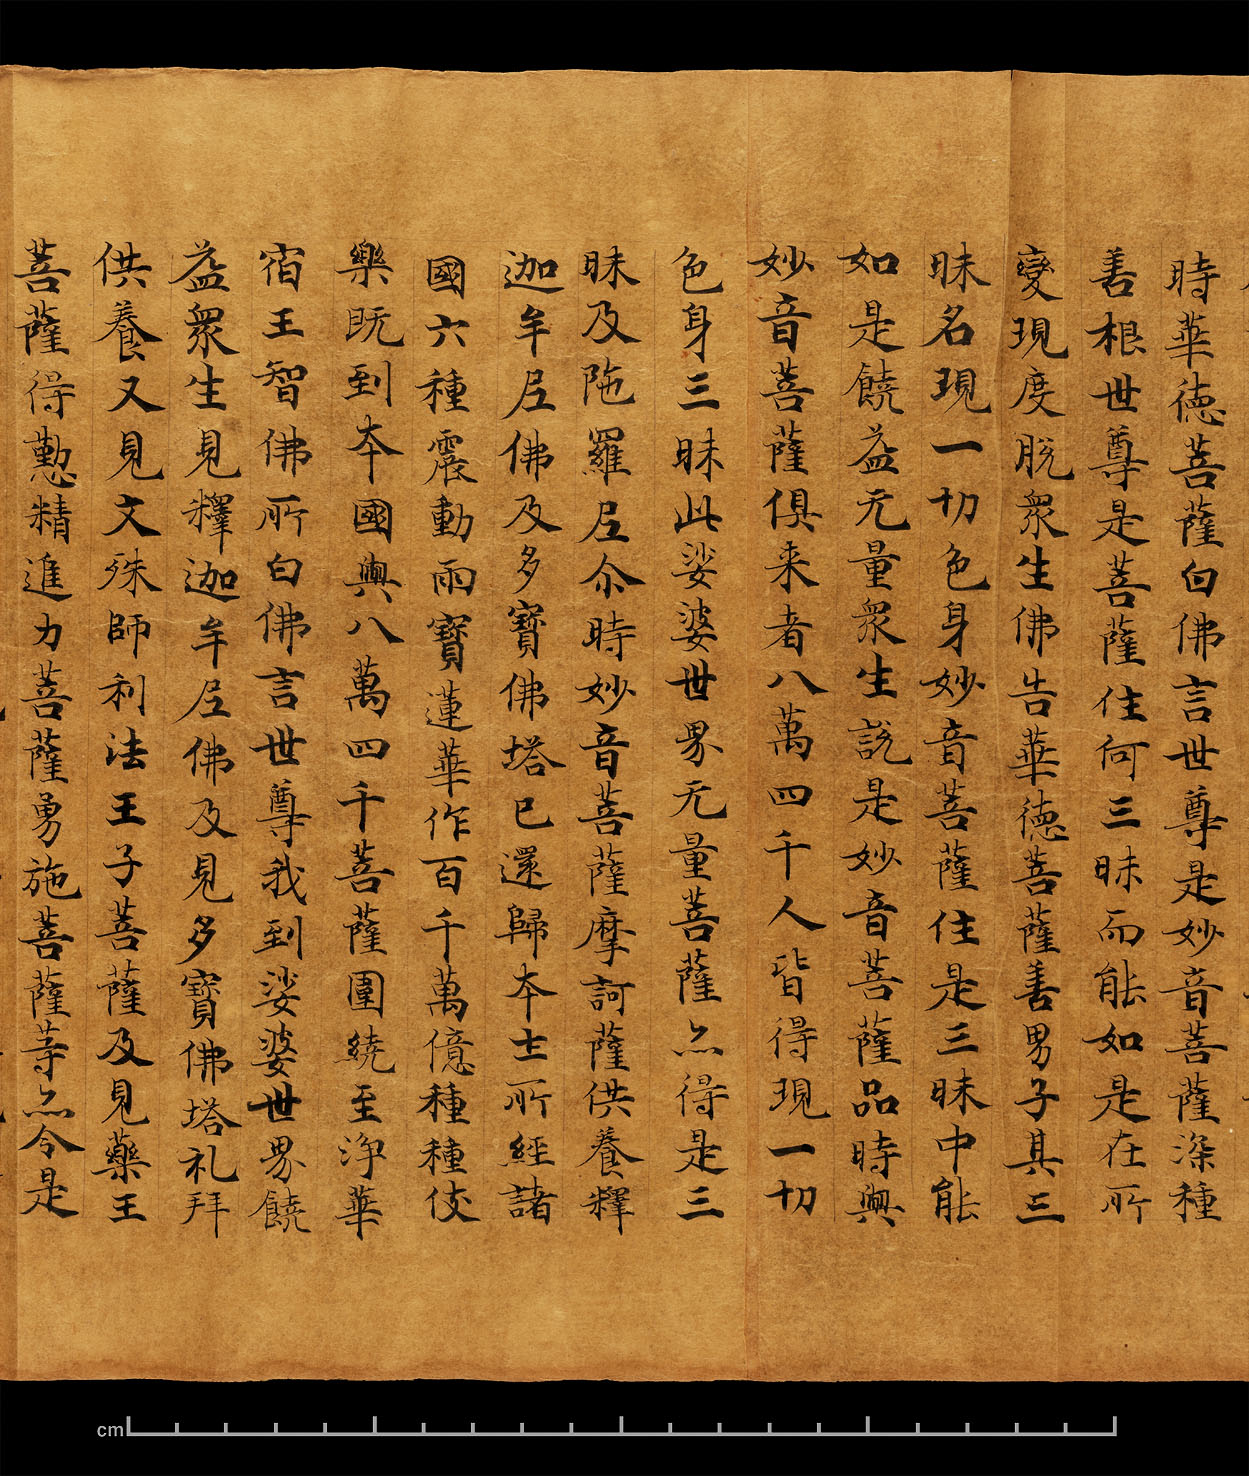 時華德菩薩白佛言世尊是妙音菩薩深種
善根世尊是菩薩住何三昧而能如是在所
變現度脫衆生佛告華德菩薩善男子其三
昧名現一切色身妙音菩薩住是三昧中能
如是饒益无量衆生說是妙音菩薩品時與
妙音菩薩俱来者八萬四千人皆得現一切
色身三昧此娑婆世界无量菩薩亦得是三
昧及陁羅尼尒時妙音菩薩摩訶薩供養釋
迦牟尼佛及多寶佛塔已還歸本土所經諸
國六種震動雨寶蓮華作百千萬億種種伎
樂既到本國與八萬四千菩薩圍繞至淨華
宿王智佛所白佛言世尊我到娑婆世界饒
益衆生見釋迦牟尼佛及見多寶佛塔礼拜
供養又見文殊師利法王子菩薩及見藥王
菩薩得懃精進力菩薩勇施菩薩等亦令是
cm